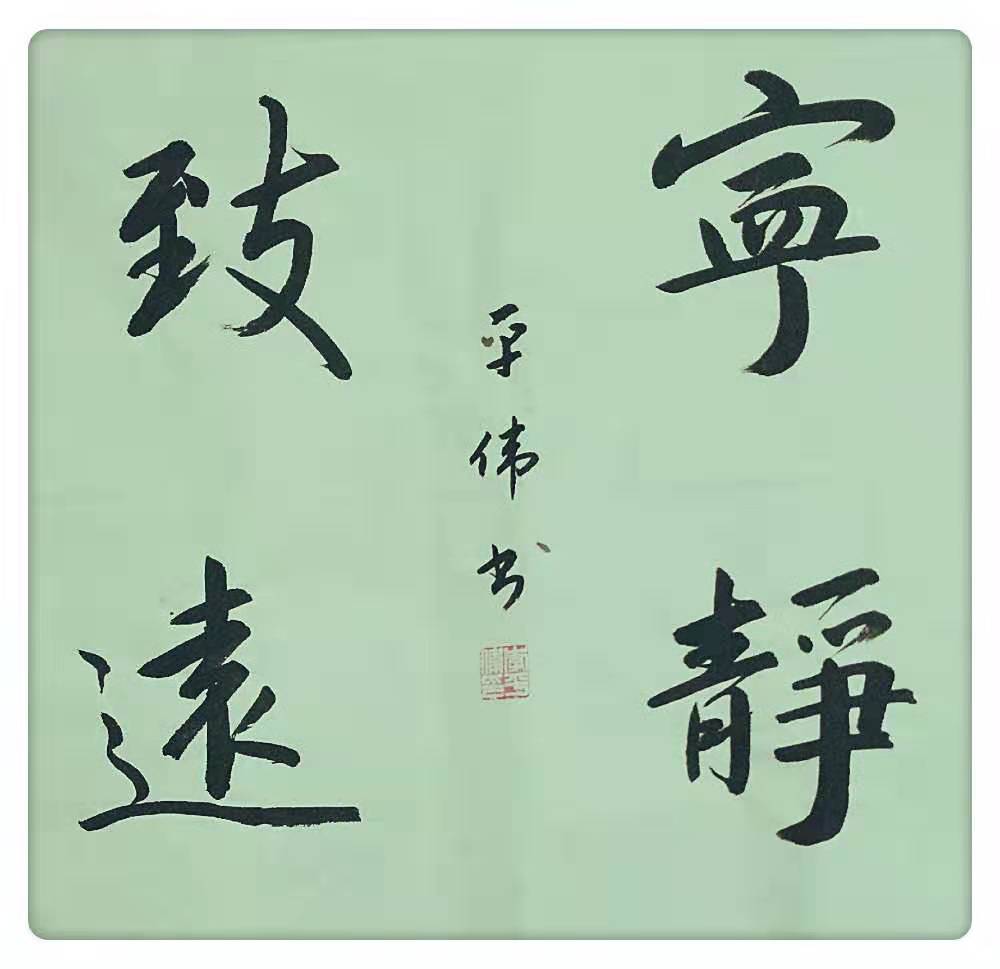 寧靜
致遠
平伟书